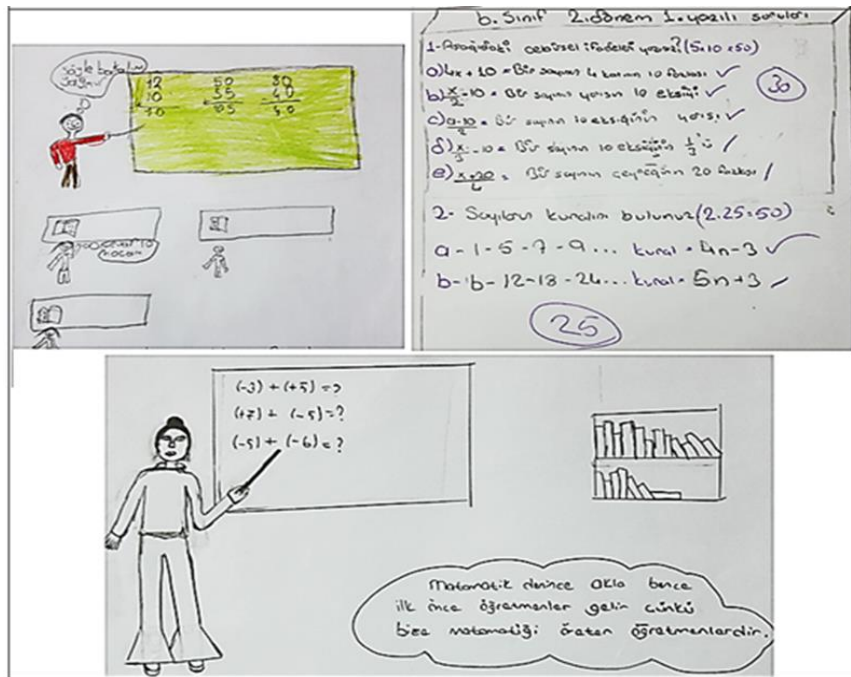 söyle bakalım
12 50 80
10 55 40
30 05 40
hocam
6. Sınıf 2.dönem 1.yazılı soruları
1-Aşağıdaki cebirsel ifadeleri yazınız? (5x10=50)
a) 4x + 10 = Bir sayının 4 katının 10 fazlası ✓
30
b) x/2 - 10 = Bir sayının yarısının 10 eksiği ✓
c) a-10/2 = Bir sayının 10 eksiğinin yarısı ✓
d) x/3 - 10 = Bir sayının 10 eksiğinin 1/3'ü /
e) x+20/4 = Bir sayının çeyreğinin 20 fazlası /
2- Sayıların kuralını bulunuz (2.25=50)
a - 1 - 5 - 7 - 9 ... kural = 4n-3 ✓
b - 6 - 12 - 18 - 24 ... kural = 5n+3 /
25
(-3) + (+5) = ?
(+7) + (-5) = ?
(-5) + (-6) = ?
Matematik derince akla bence
ilk önce öğretmenler gelir çünkü
bize matematiği öreten öğretmenlerdir.